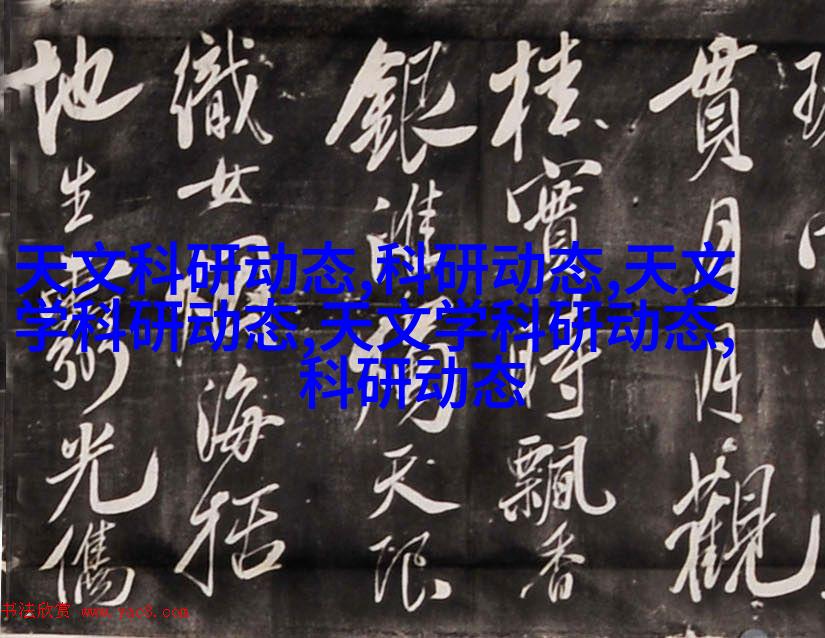 貫月月觀
桂實時飄香
銀淮 天限
織女 海括
地生 光儁
天文科研动态,科研动态,天文
学科研动态,天文学科研动态,
科研动态
书法欣赏 www.yac8.com